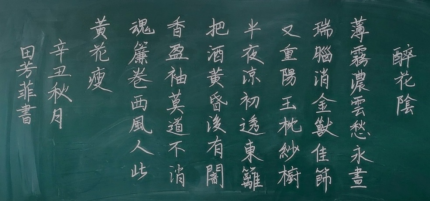 醉花陰
薄霧濃雲愁永晝
瑞腦消金獸佳節
又重陽玉枕紗櫥
半夜涼初透東籬
把酒黃昏後有闇
香盈袖莫道不消
魂簾卷西風人比
黃花瘦
辛丑秋月
田芳菲書